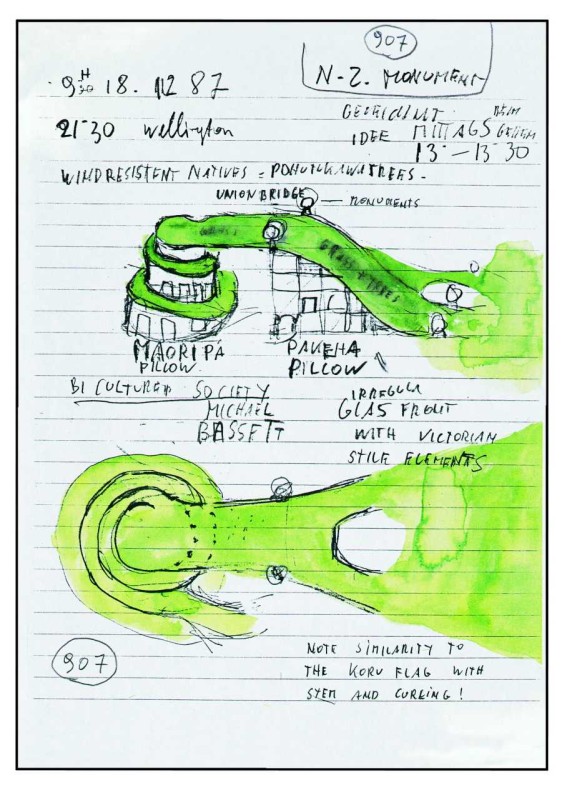 907
N-Z. MONUMENT
9 H 30 18. 12 87
21-30 Wellington
GEZEICHNET BEIM
IDEE MITTAGSESSEN
13 - 13 30
WIND RESISTENT NATIVES = POHUTUKAWA TREES -
UNION BRIDGE
MONUMENTS
GRASS
GRASS + TREES
MAORI PA
PILLOW
PAKEHA
PILLOW
BI CULTURAL SOCIETY
MICHAEL
BASSETT
IRREGULR
GLAS FRONT
WITH VICTORIAN
STILE ELEMENTS
NOTE SIMILARITY TO
THE KORU FLAG WITH
STEM AND CURLING!
907